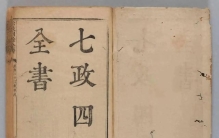 七政四
全書